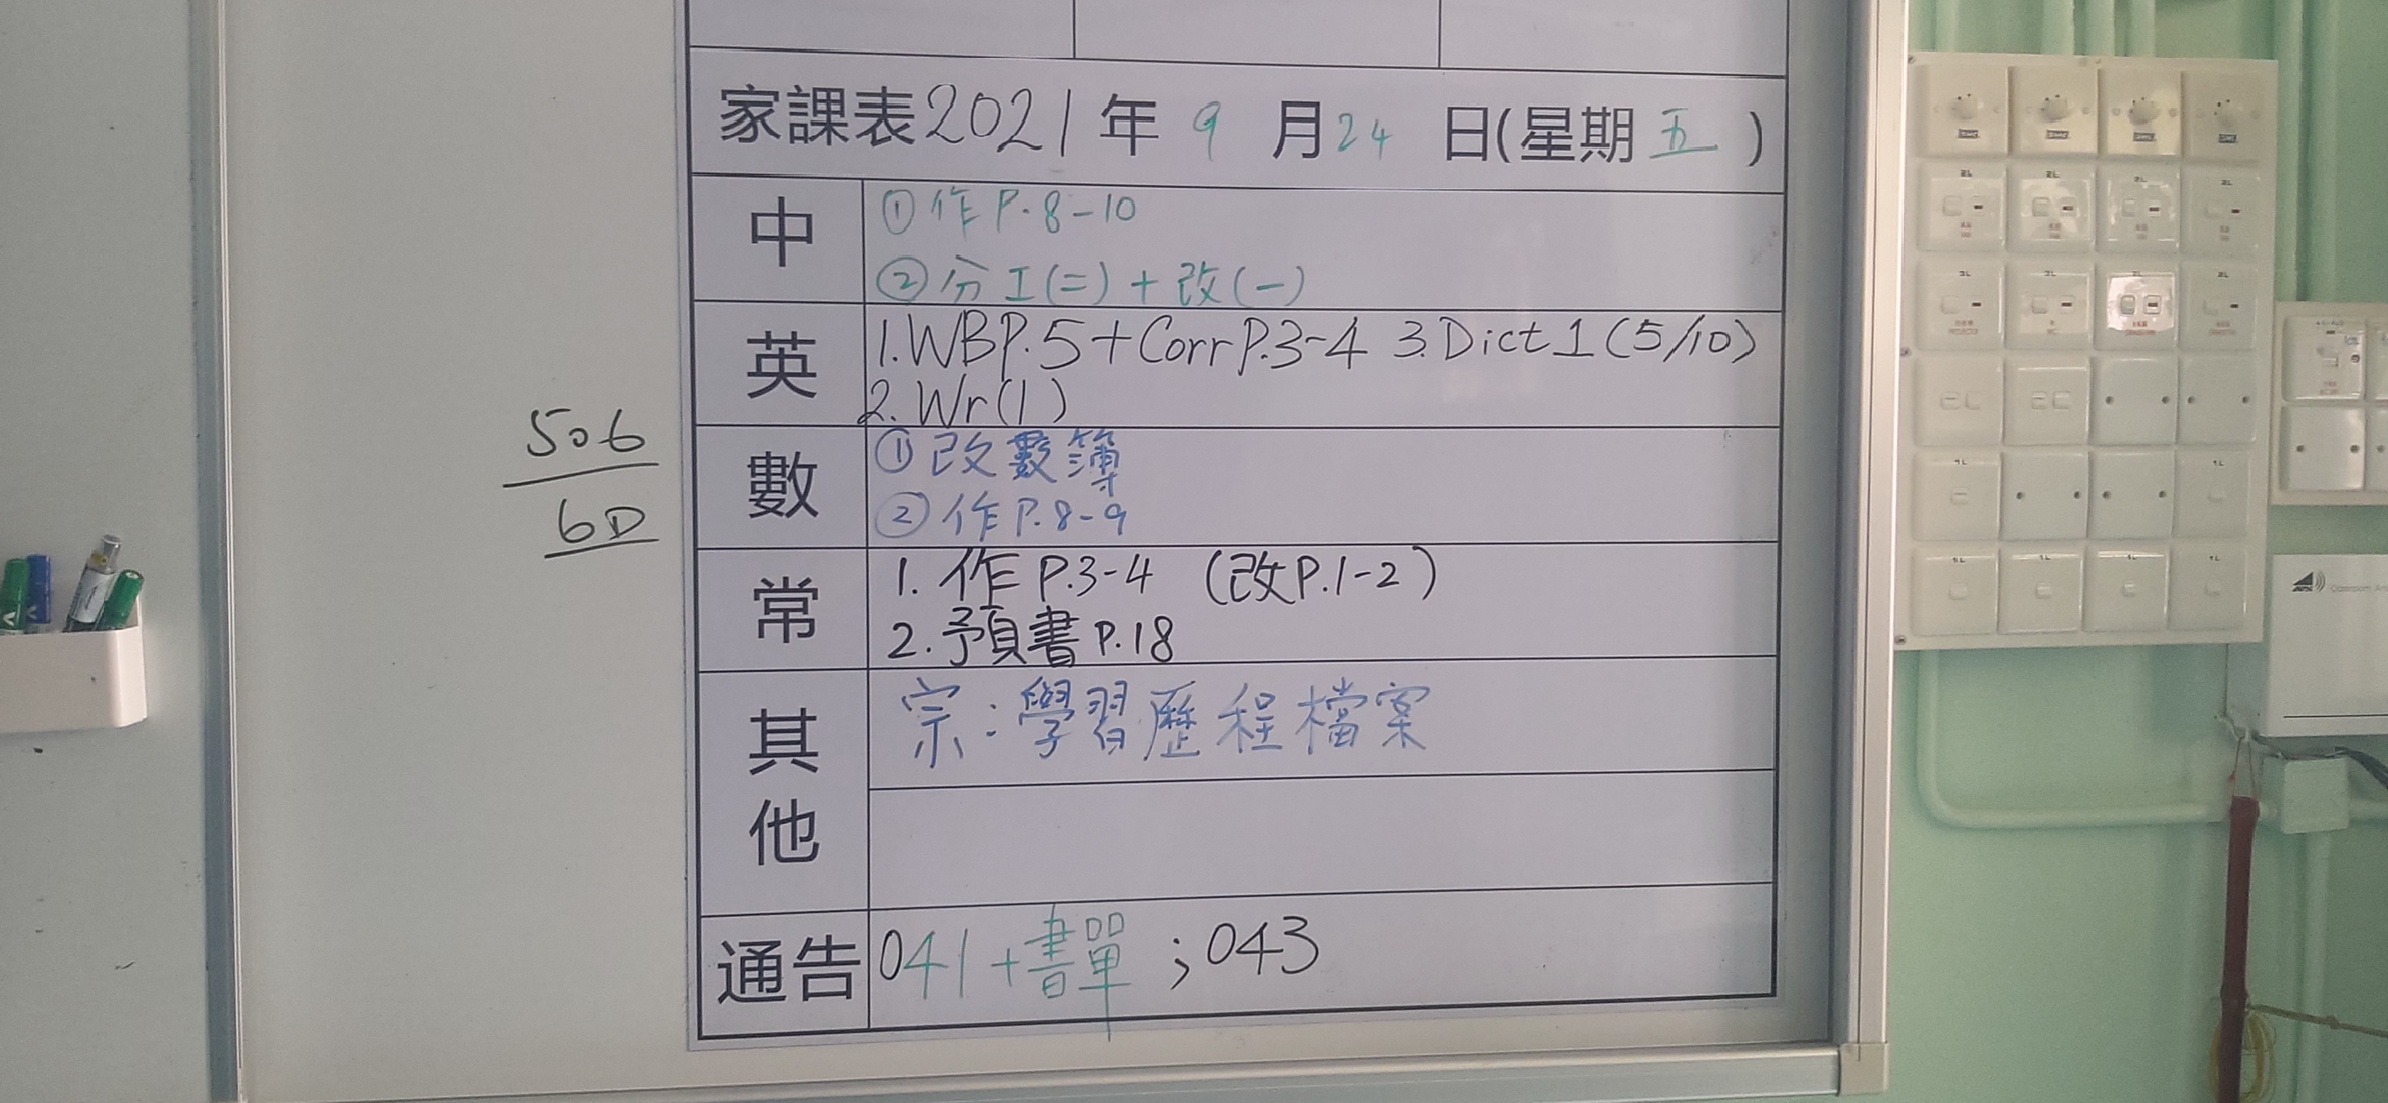 家課表2021年9月24日(星期五)
中
①作P.8-10
②分工(二)+改(一)
英
1.WBP.5+CorrP.3-4 3.Dict1(5/10)
2.Wr(1)
506
6D
數
①改數簿
②作P.8-9
常
1.作P.3-4 (改P.1-2)
2.預書P.18
其他
宗:學習歷程檔案
通告
041+書單;043